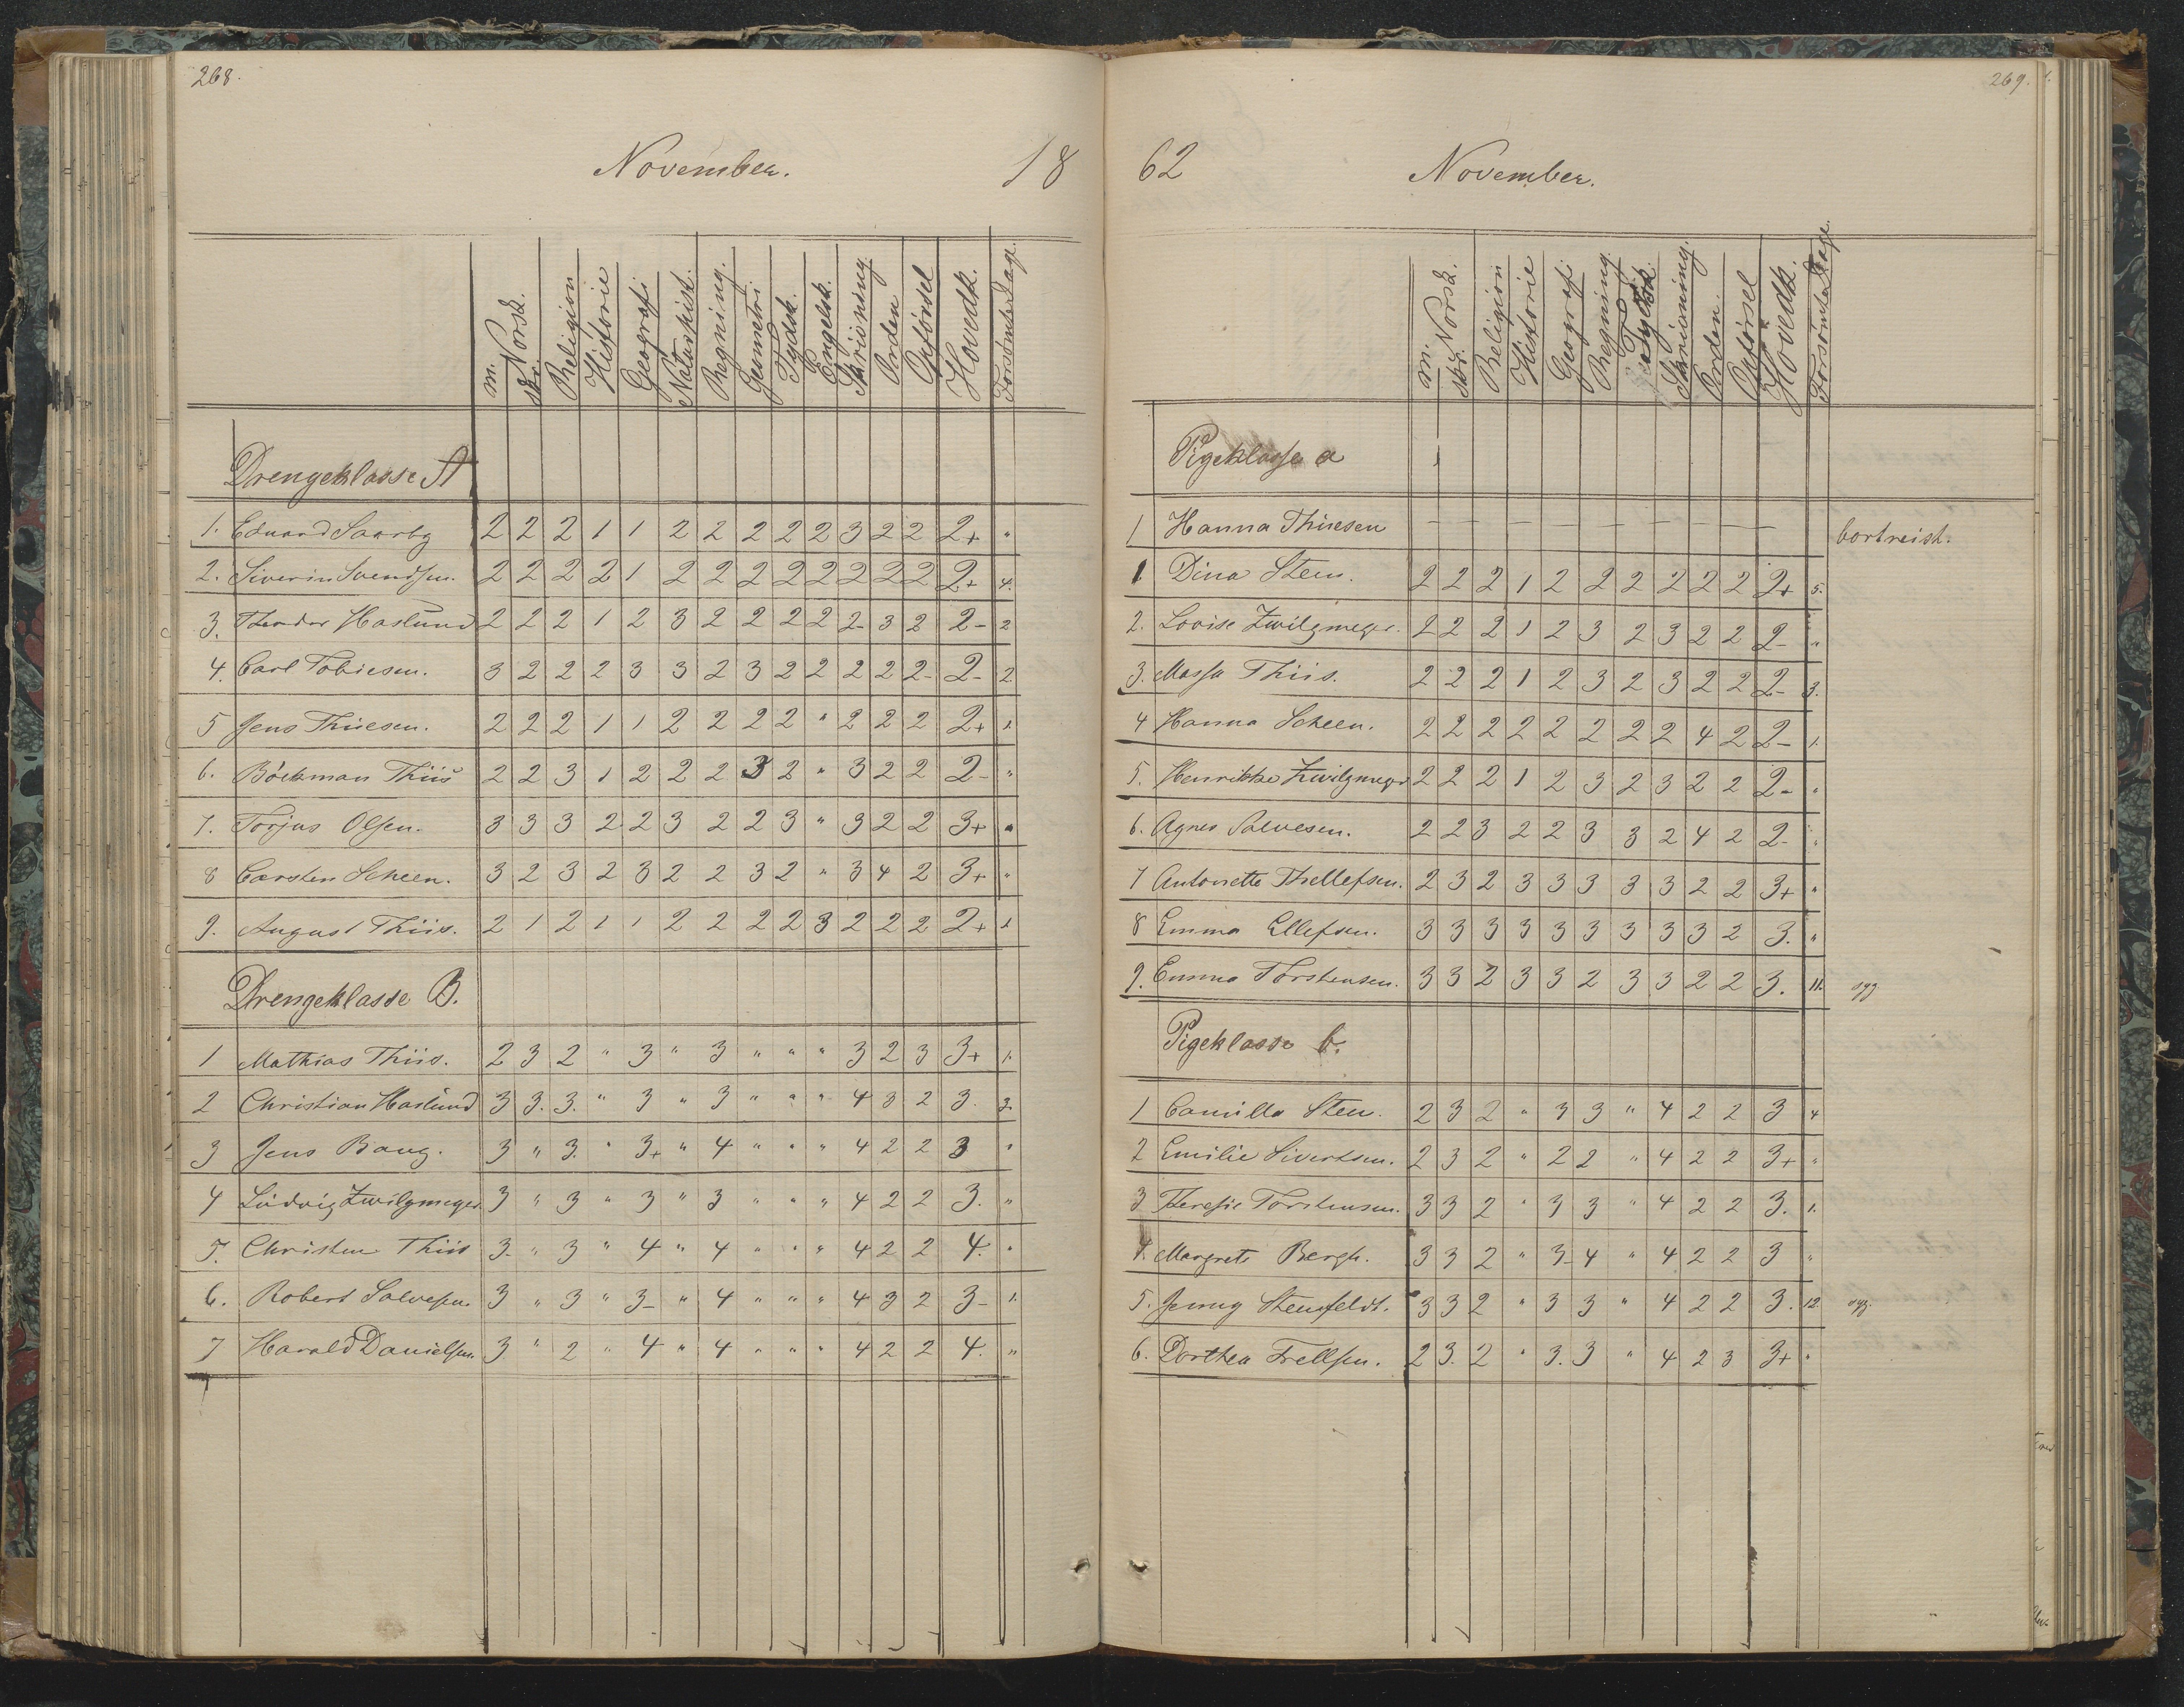 268.
November. 18
m. Norsk. skr. Religion Historie Geografi Naturhist. Regning. Geometri Tydsk. Engelsk. Skrivning Orden Opførsel Hovedk. Forsömte Dage.
Drengeklasse A
1. Eduard Saarby 2 2 2 1 1 2 2 2 2 2 3 2 2 2+ "
2. Siverin Svendsen. 2 2 2 2 1 2 2 2 2 2 2 2 2 2+ 4.
3. Theodor Haslund 2 2 2 1 2 3 2 2 2 2 2- 3 2 2- 2
4. Carl Tobiesen. 3 2 2 2 3 3 2 3 2 2 2 2 2- 2- 2.
5 Jens Thiesen. 2 2 2 1 1 2 2 2 2 " 2 2 2 2+ 1.
6. Böckman Thiis 2 2 3 1 2 2 2 3 2 " 3 2 2 2- "
7. Torjus Olsen. 3 3 3 2 2 3 2 2 3 " 3 2 2 3+ "
8 Carsten Scheen. 3 2 3 2 3 2 2 3 2 " 3 4 2 3+ "
9. August Thiis. 2 1 2 1 1 2 2 2 2 3 2 2 2 2+ 1
Drengeklasse B.
1 Mathias Thiis. 2 3 2 " 3 " 3 " " " 3 2 3 3+ 1.
2 Christian Haslund 3 3. 3. " 3 " 3 " " " 4 3 2 3. 3.
3 Jens Bang. 3 " 3. " 3+ " 4 " " " 4 2 2 3 "
4 Ludvig Zwilgmeyer. 3 " 3 " 3 " 3 " " " 4 2 2 3. "
5. Christen Thiis 3. " 3 " 4 " 4 " " " 4 2 2 4. "
6. Robert Salvesen. 3 " 3 " 3- " 4 " " " 4 3 2 3- 1.
7 Harald Danielsen. 3 " 2 " 4 " 4 " " " 4 2 2 4. "
269.
62 November.
m. Norsk. skr. Religion Historie Geografi Regning Tydsk. Skrivning. Orden. Opførsel Hovedk. Forsömte Dage.
Pigeklasse a
1 Hanna Thiesen — — — — — — — — bortreist.
1. Dina Steen. 2 2 2 1 2 2 2 2 2 2 2+ 5.
2. Lovise Zwilgmeyer. 2 2 2 1 2 3 2 3 2 2 2- "
3. Massa Thiis. 2 2 2 1 2 3 2 3 2 2 2- 3.
4 Hanna Scheen. 2 2 2 2 2 2 2 2 4 2 2- 1.
5. Henrikke Zwilgmeyer 2 2 2 1 2 3 2 3 2 2 2- "
6. Agnes Salvesen. 2 2 3 2 2 3 3 2 4 2 2- "
7 Antonette Thellefsen. 2 3 2 3 3 3 3 3 2 2 3+ "
8 Emma Ellefsen. 3 3 3 3 3 3 3 3 3 2 3. "
9. Emma Torstensen. 3 3 2 3 3 2 3 3 2 2 3. 11. syg
Pigeklasse b.
1 Camilla Steen. 2 3 2 " 3 3 " 4 2 2 3 4
2 Emilie Sivertsen. 2 3 2 " 2 2 " 4 2 2 3+ "
3 Theresie Torstensen. 3 3 2 " 3 3 " 4 2 2 3. 1.
4. Margrete Bergh. 3 3 2 " 3- 4 " 4 2 2 3 "
5. Jenny Stensfeldt. 3 3 2 " 3 3 " 4 2 2 3. 12. syg.
6. Dorthea Trellsen. 2 3. 2 " 3. 3 " 4 2 3 3+ "